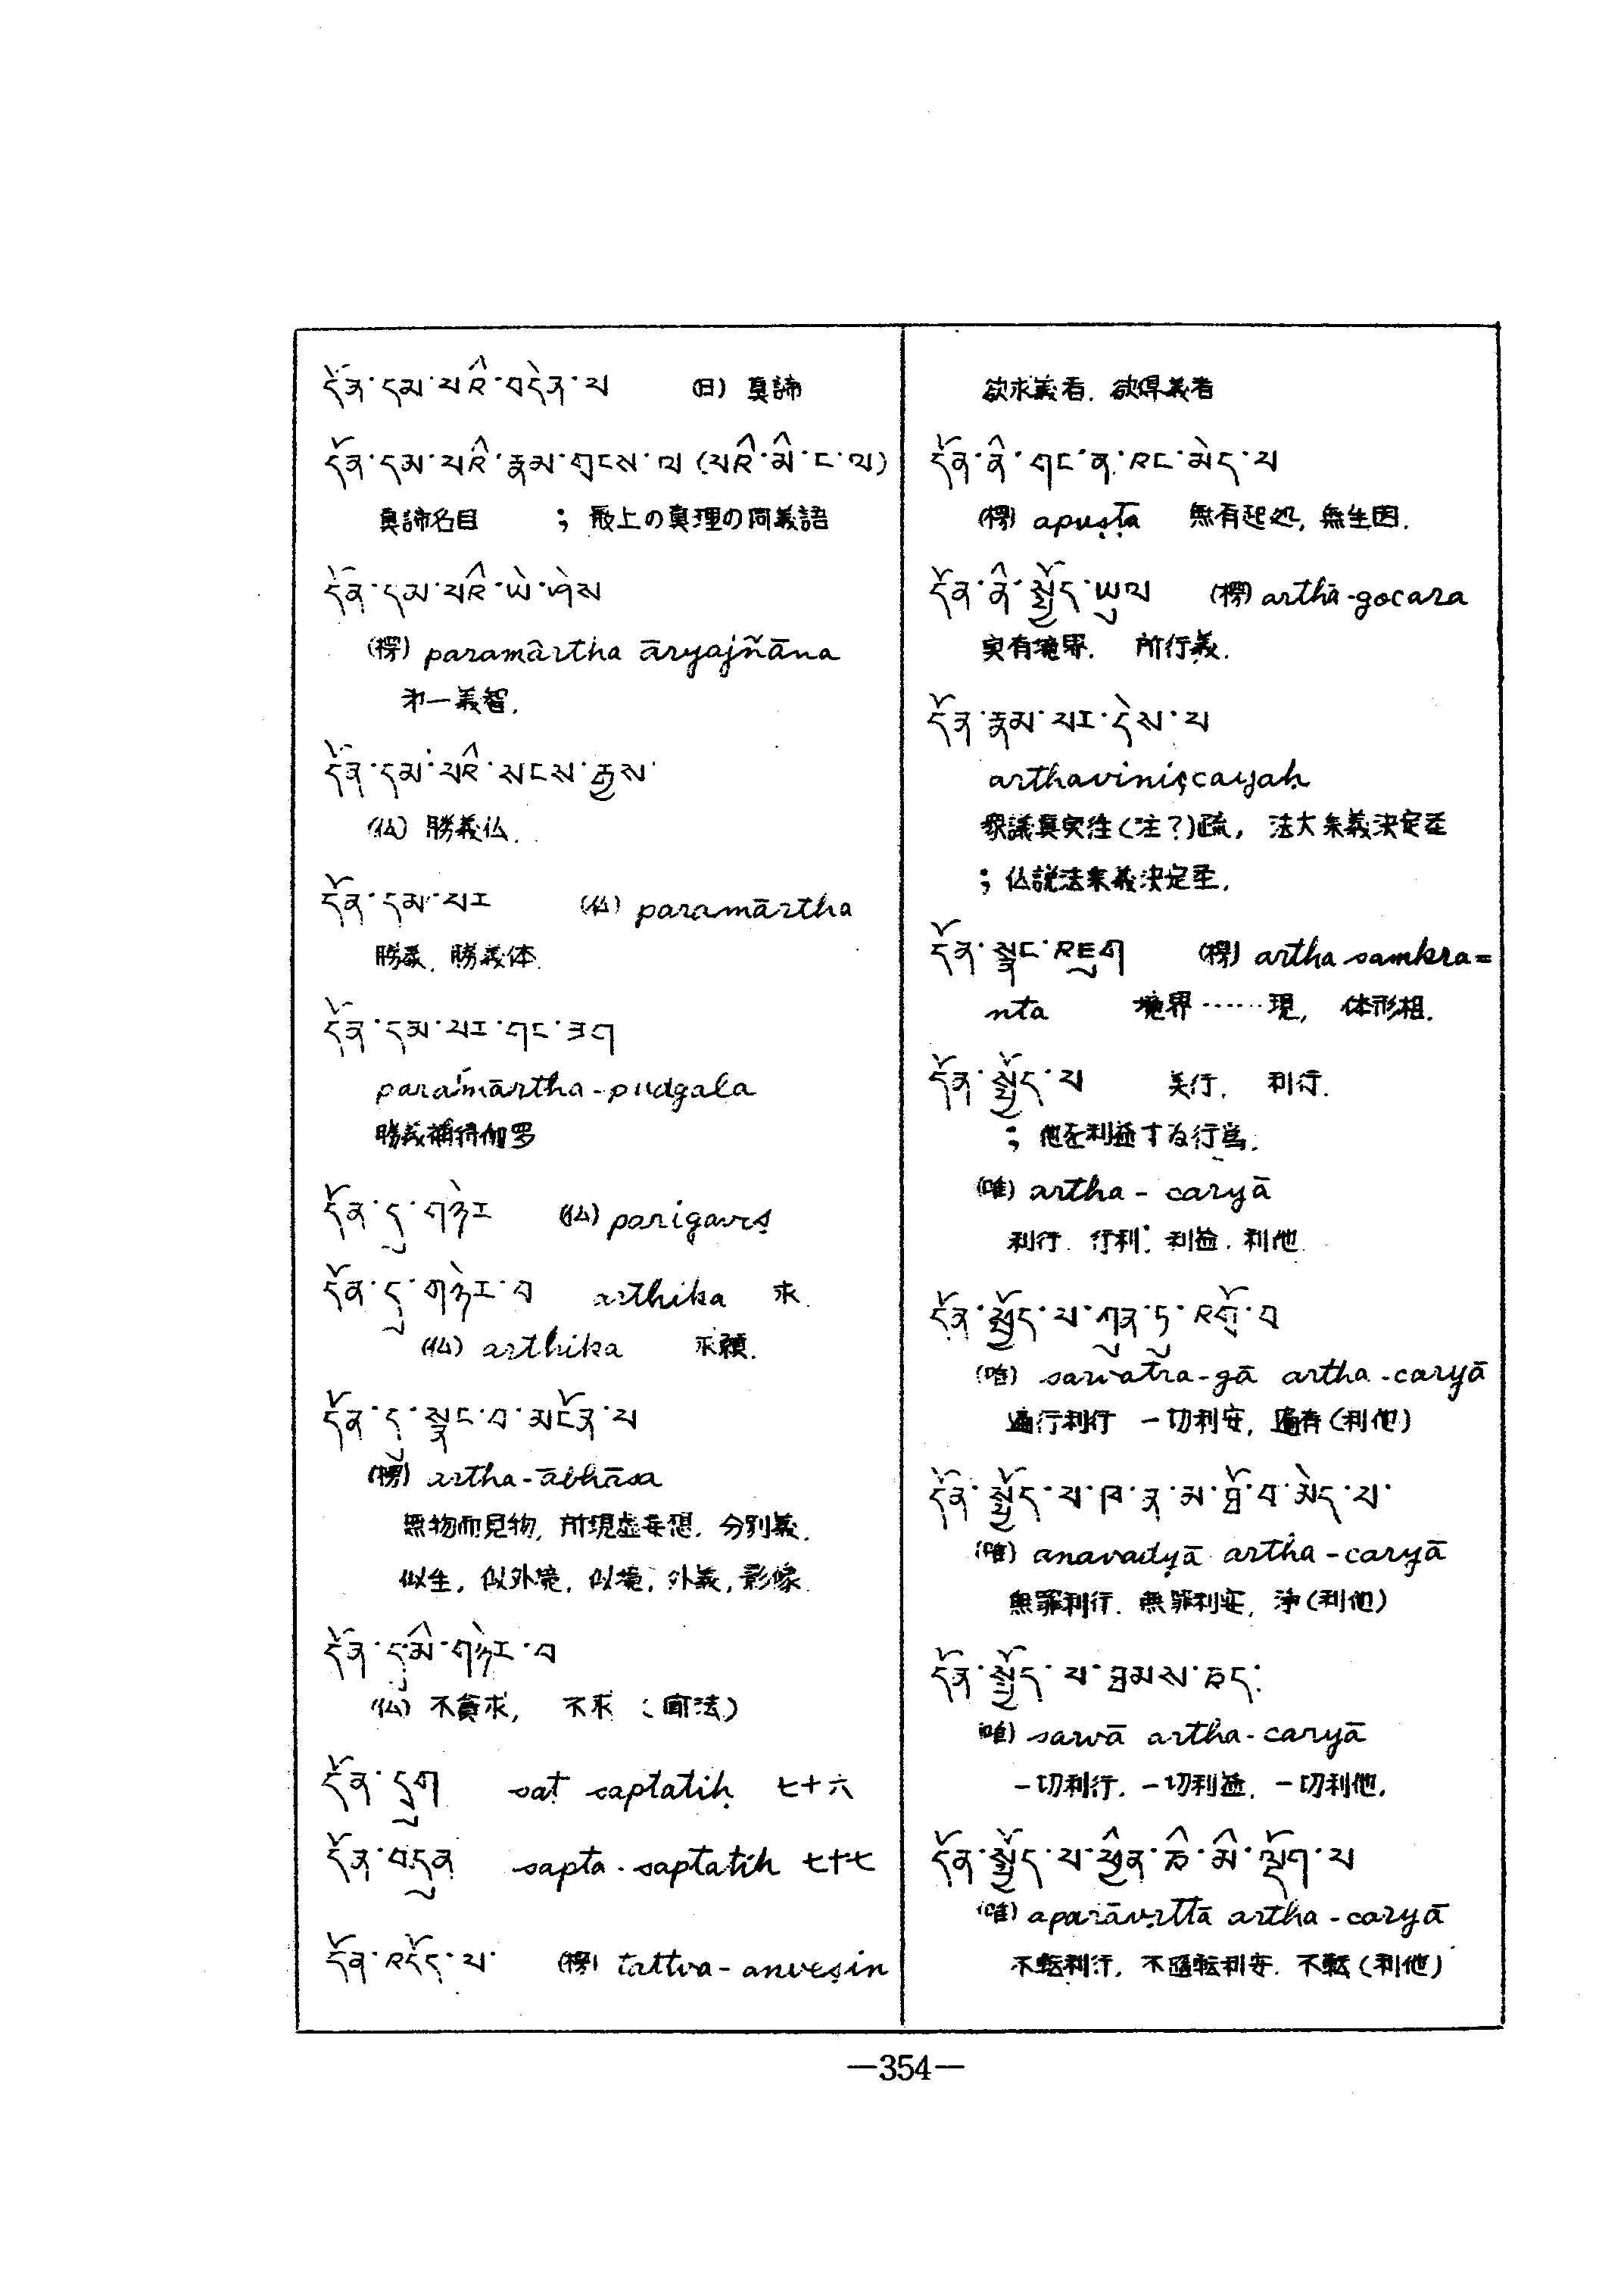 དོན་དམ་པའི་བདེན་པ (日) 真諦
དོན་དམ་པའི་རྣམ་གྲངས་ལ (པའི་མི་ང་ལ)
真諦名目 ; 最上の真理の同義語
དོན་དམ་པའི་ཡེ་ཤེས
(楞) paramârtha āryajñāna
第一義智.
དོན་དམ་པའི་སངས་རྒྱས་
(仏) 勝義仏.
དོན་དམ་པར (仏) paramārtha
勝義. 勝義体.
དོན་དམ་པར་གང་ཟག
paramārtha-pudgala
勝義補特伽罗
དོན་དུ་གཉེར (仏) parigaveṣ
དོན་དུ་གཉེར་བ arthika 求.
(仏) arthika 求願.
དོན་དུ་སྣང་བ་མངོན་པ
(楞) artha-ābhāsa
無物而見物, 所現虚妄想. 分別義.
似生, 似外境, 似境, 外義, 影像.
དོན་དུ་མི་གཉེར་བ
(仏) 不貪求, 不求 (聞法)
དོན་དྲུག ṣaṭ saptatiḥ 七十六
དོན་བདུན sapta-saptatiḥ 七十七
དོན་འདོད་པ་ (楞) tattva-anveṣin
欲求義者. 欲得義者
དོན་ནི་གང་ན་འང་མེད་པ
(楞) apuṣṭa 無有起処, 無生因.
དོན་ནི་སྤྱོད་ཡུལ (楞) artha-gocara
実有境界. 所行義.
དོན་རྣམ་པར་ངེས་པ
arthaviniçcayaḥ
衆議真実性(注?)疏, 法大乗義決定
; 仏説法乗義決定
དོན་སྣང་འཇུག (楞) artha samkra=
nta 境界……現, 体形相.
དོན་སྤྱོད་པ 美行. 利行.
; 他を利益する行為.
(唯) artha-caryā
利行. 行利; 利益. 利他.
དོན་སྤྱོད་པ་ཀུན་ཏུ་འགྲོ་བ
(唯) sarvatra-gā artha-caryā
遍行利行 一切利安, 遍有(利他)
དོན་སྤྱོད་པ་ཁ་ན་མ་ཐོ་བ་མེད་པ་
(唯) anavadyā artha-caryā
無罪利行. 無罪利安, 浄(利他)
དོན་སྤྱོད་པ་ཐམས་ཅད་
(唯) sarvā artha-caryā
一切利行. 一切利益. 一切利他.
དོན་སྤྱོད་པ་ཕྱིན་ཅི་མི་ལྡོག་པ
(唯) aparāvṛttā artha-caryā
不転利行, 不随転利安. 不転(利他)
—354—